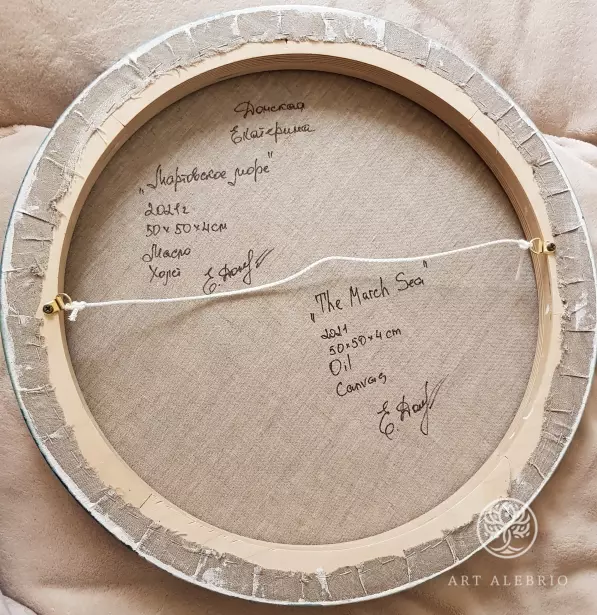 Донская
Екатерина
„Мартовское море"
2021г
50×50×4см
Масло
Холст
Е. Дон
„The March Sea"
2021
50×50×4 cm
Oil
Canvas
Е. Дон
ART ALEBRIO